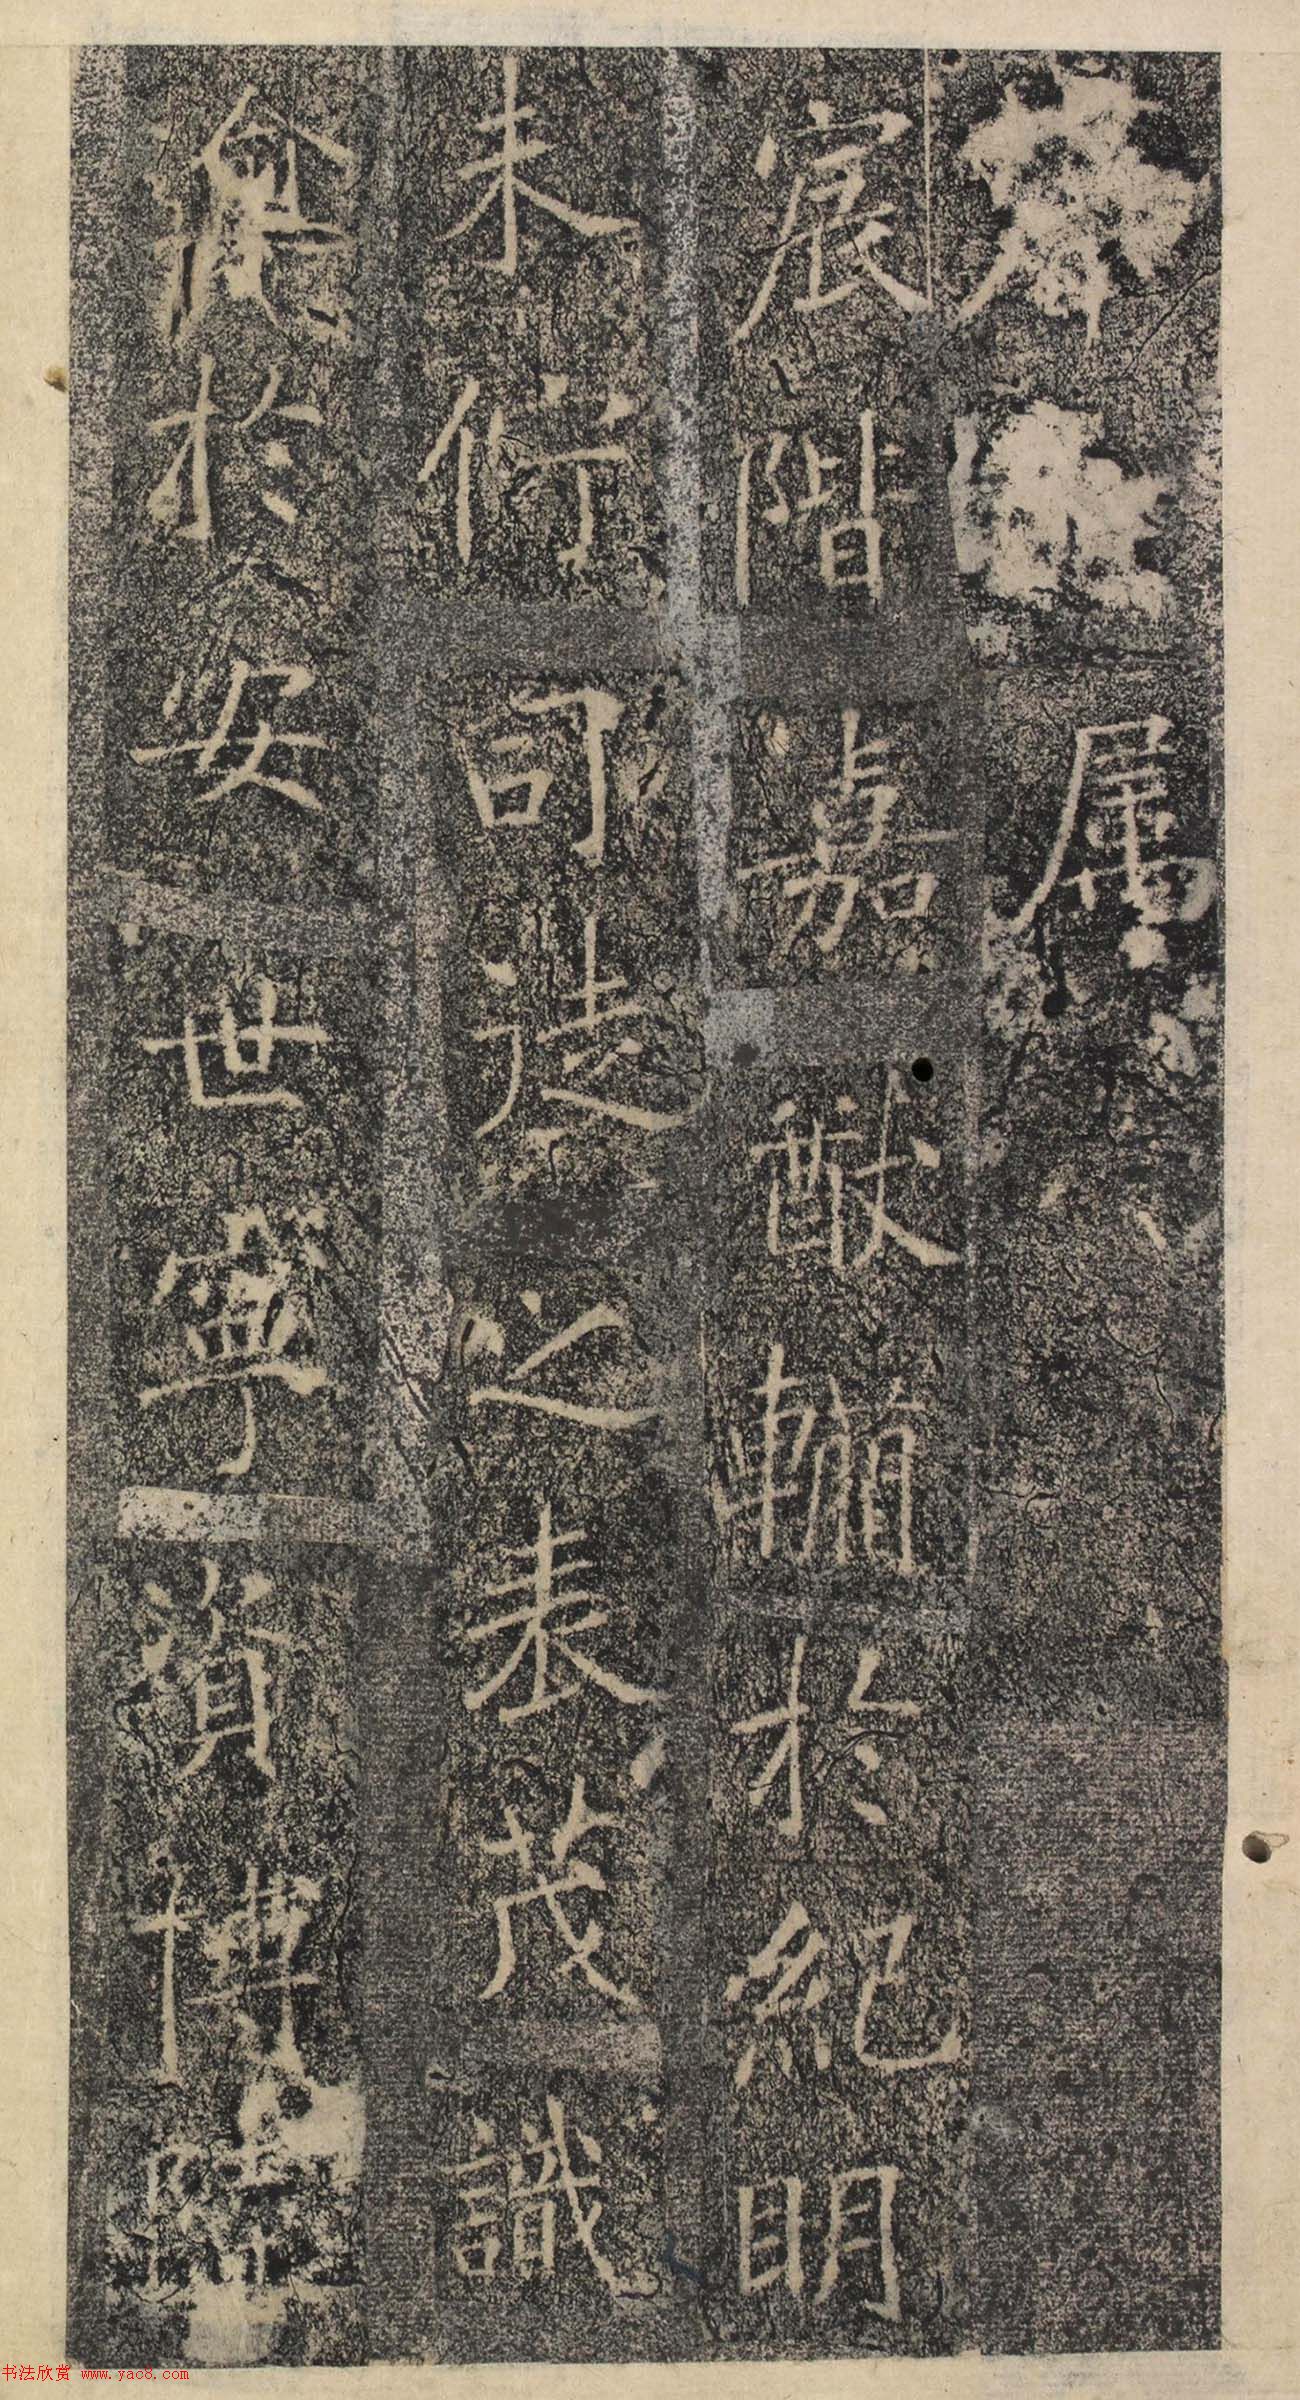 属
宸階嘉猷於紀明
未行司造之表茂識
於安世寧資博陸
书法欣赏 www.yac8.com